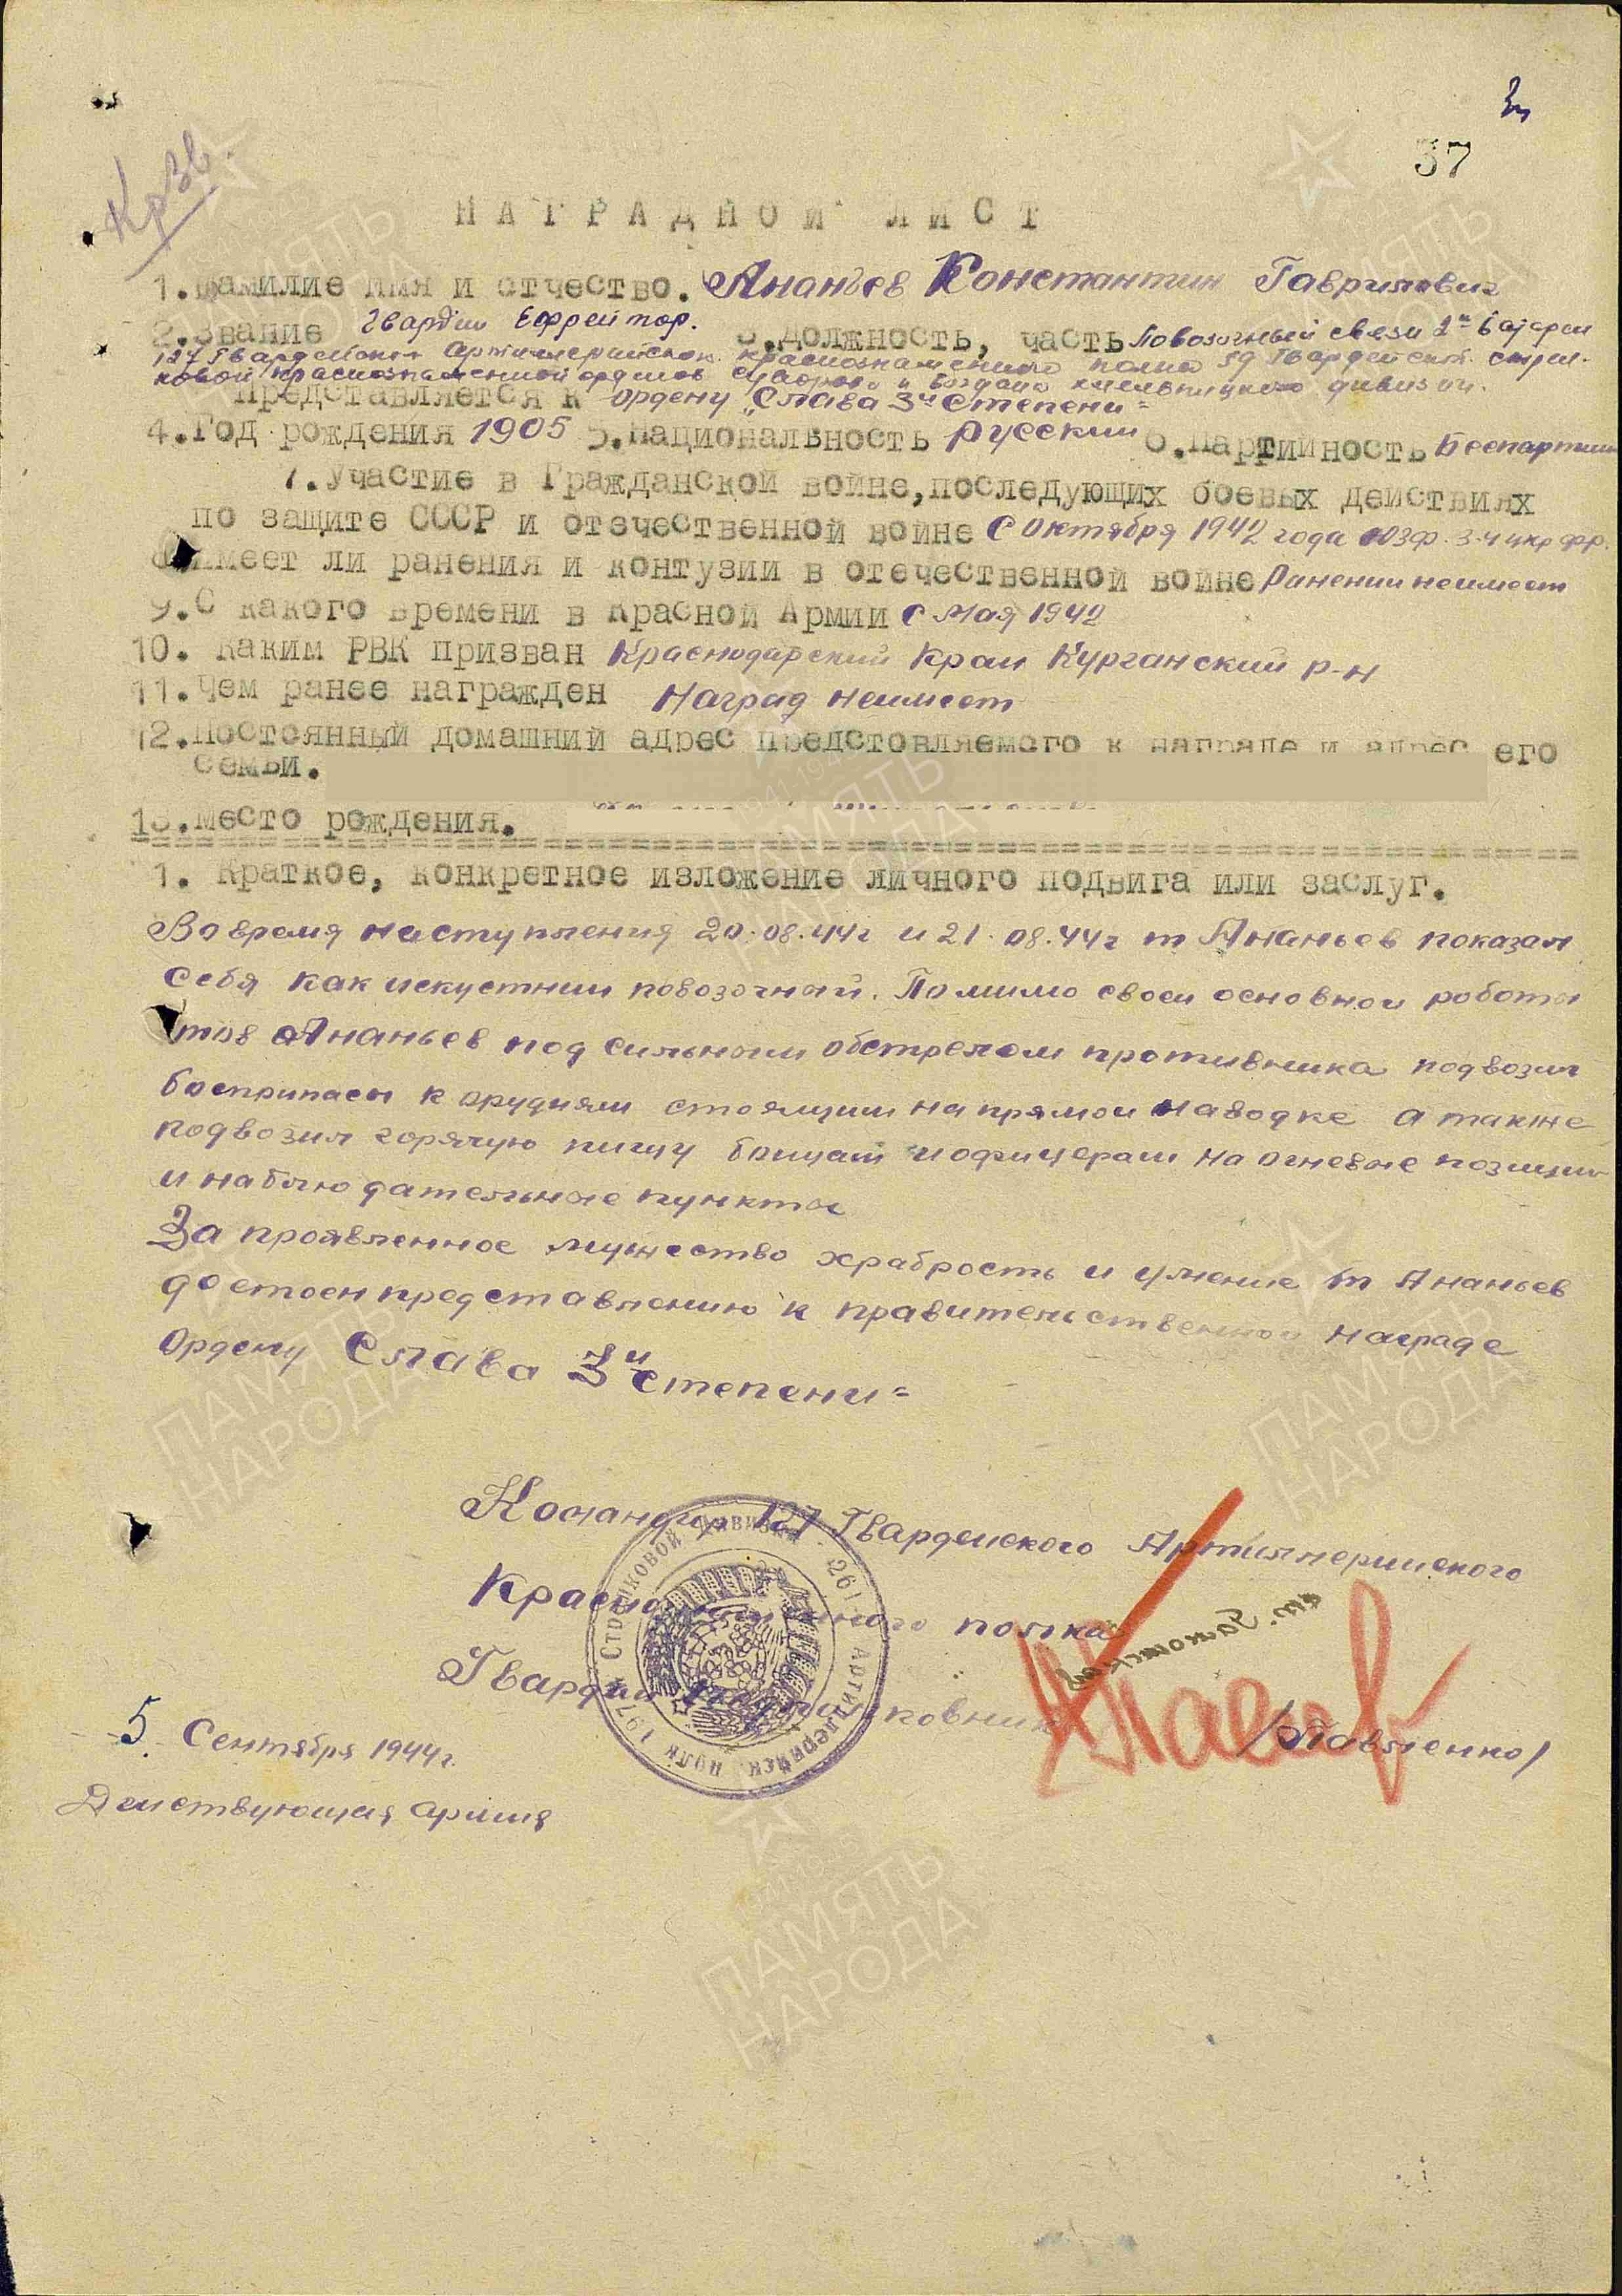 37
Кр Зв.
НАГРАДНОЙ ЛИСТ
1. Фамилие имя и отчество. Ананьев Константин Гаврилович
2. Звание Гвардии Ефрейтор. 3. Должность, часть Повозочный связи 2й батареи
127 Гвардейского Артиллерийского краснознаменного полка 59 Гвардейской стрел-
ковой краснознаменной орденов Суворова и Богдана Хмельницкого дивизии.
Представляется к ордену „Слава 3й Степени"
4. Год рождения 1905 5. Национальность русский 6. Партийность Беспартийн
7. Участие в Гражданской войне, последующих боевых действиях
по защите СССР и отечественной войне с октября 1942 года ЮЗФ. 3-й укр фр.
8. Имеет ли ранения и контузии в отечественной войне Ранений неимеет
9. С какого времени в Красной Армии с Мая 1942
10. Каким РВК призван Краснодарский Край Курганский р-н
11. Чем ранее награжден Наград неимеет
12. Постоянный домашний адрес предстовляемого к награде и адрес его
семьи.
13. Место рождения.
1. Краткое, конкретное изложение личного подвига или заслуг.
Во время наступления 20.08.44г и 21.08.44г т Ананьев показал
себя как искустний повозочный. Помимо своей основной роботы
тов Ананьев под сильным обстрелом противника подвозил
боеприпасы к орудиям стоящим на прямой наводке а также
подвозил горячую пищу бойцам и офицерам на огневые позиции
и наблюдательные пункты
За проявленное мужество храбрость и умение т Ананьев
достоен представлению к правительственной награде
Ордену Слава 3й степени =
Командир 127 Гвардейского Артиллерийского
Краснознаменного полка
Гвардии Подполковник /Павленко/
5 Сентября 1944г.
Действующая армия
197 Стрелковой Дивизии 261 Артиллерийск. полк
ПАМЯТЬ
НАРОДА